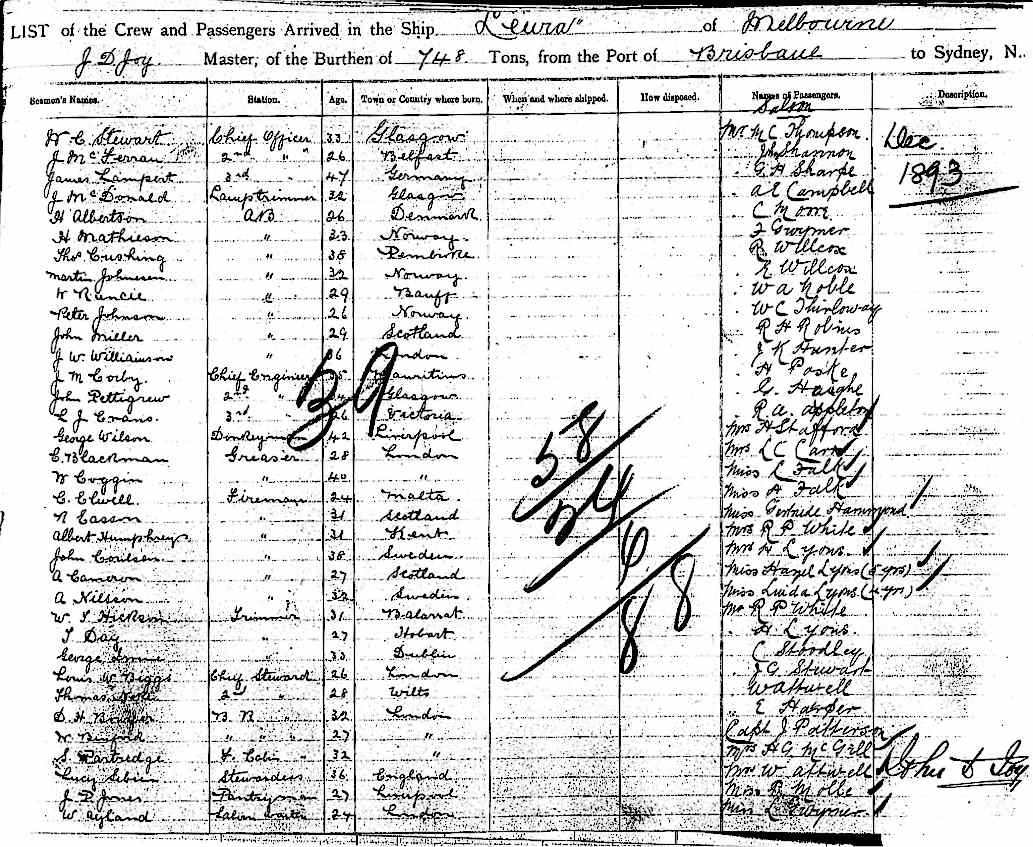 LIST of the Crew and Passengers Arrived in the Ship "Leura" of Melbourne
J D Joy Master, of the Burthen of 748 Tons, from the Port of Brisbane to Sydney, N.
Seamen's Names. Station. Age. Town or Country where born. When and where shipped. How disposed. Names of Passengers. Description.
Saloon
W C Stewart Chief Officer 33 Glasgow Mr McC Thompson Dec
J McFerran 2nd " " 26 Belfast Jn Shannon
James Lampert 3rd " 47 Germany G H Sharpe 1893
J McDonald Lamptrimmer 32 Glasgow A E Campbell
H Albertson A.B. 26 Denmark C Moore
H Mathieson " 33 Norway F Gwymer
Thos Cushing " 38 Pembroke R Willcox
Martin Johnesen " 32 Norway E Willcox
W Runcie " 29 Banff W A Noble
Peter Johnson " 26 Norway W C Thirloway
John Miller " 29 Scotland R H Robins
J W Williamson " 36 London J K Hunter
J M Corby Chief Engineer 35 Mauritius H Paske
John Pettigrew 2nd " Glasgow G Haughe
L J Evans 3rd " 26 Victoria R A Appleton
George Wilson Donkeyman 42 Liverpool Mrs H Stafford
C Blackman Greaser 28 London Mrs L C Carr
W Goggin " 40 " Miss L Falk
C Elwell Fireman 24 Malta Miss A Falk
N Casson " 31 Scotland Miss Gertrude Hammond
Albert Humphreys " 31 Kent Mrs R P White
John Coulsen " 38 Sweden Mrs H Lyons
A Cameron " 27 Scotland Miss Hazel Lyons (5 yrs)
A Nilsson " 32 Sweden Miss Linda Lyons ( yr)
W. T. Hickson Trimmer 31 Balarat Mr R P White
T Day " 27 Hobart " H Lyons
George " 33 Dublin C Stoodley
Louis W Biggs Chief Steward 26 London J G Stewart
Thomas 2nd " 28 Wilts W Attwell
D. H. 32 London " E Harper
W " " " 27 " Capt J Patterson
S. Partridge F. Cabin " 32 " Mrs H G McGill
Lucy Stewardess 36 England Mrs W Attwell John D Joy
J. P. Jones Pantryman 27 Liverpool Miss B Molle
W Ayland Saloon Waiter 24 London Miss L Gwymer
39
58
24
6
88